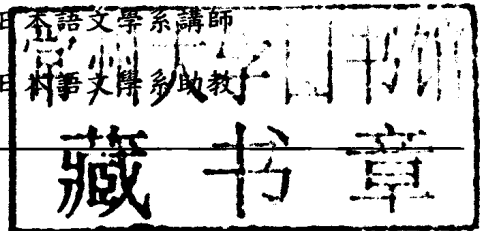 日本語文學系講師
日本語文學系助教
常州大学图书馆
藏书章